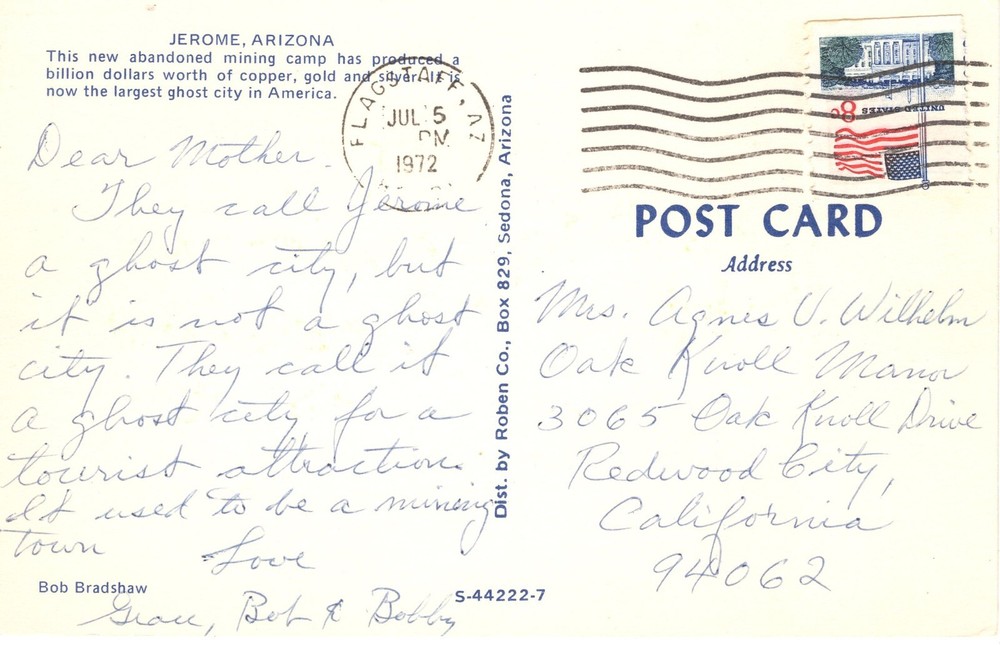 JEROME, ARIZONA
This new abandoned mining camp has produced a
billion dollars worth of copper, gold and silver. It is
now the largest ghost city in America.
FLAGSTAFF, AZ
JUL 5
PM
1972
Dear Mother.
They call Jerome
a ghost city, but
it is not a ghost
city. They call it
a ghost city for a
tourist attraction.
It used to be a mining
town
Love
Grace, Bob & Bobby
Bob Bradshaw
S-44222-7
Dist. by Roben Co., Box 829, Sedona, Arizona
UNITED STATES
8c
POST CARD
Address
Mrs. Agnes V. Wilhelm
Oak Knoll Manor
3065 Oak Knoll Drive
Redwood City,
California
94062